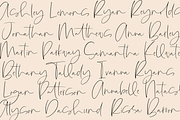 Ashley Lemons Ryan Reynolds
Jonathan Matthews Anna Barley
Martin Parkway Samantha Killwater
Bethany Talladay Ivanna Ryans
Logan Patterson Annabelle Natasc
Allyson Dachsund Rcosa Baron